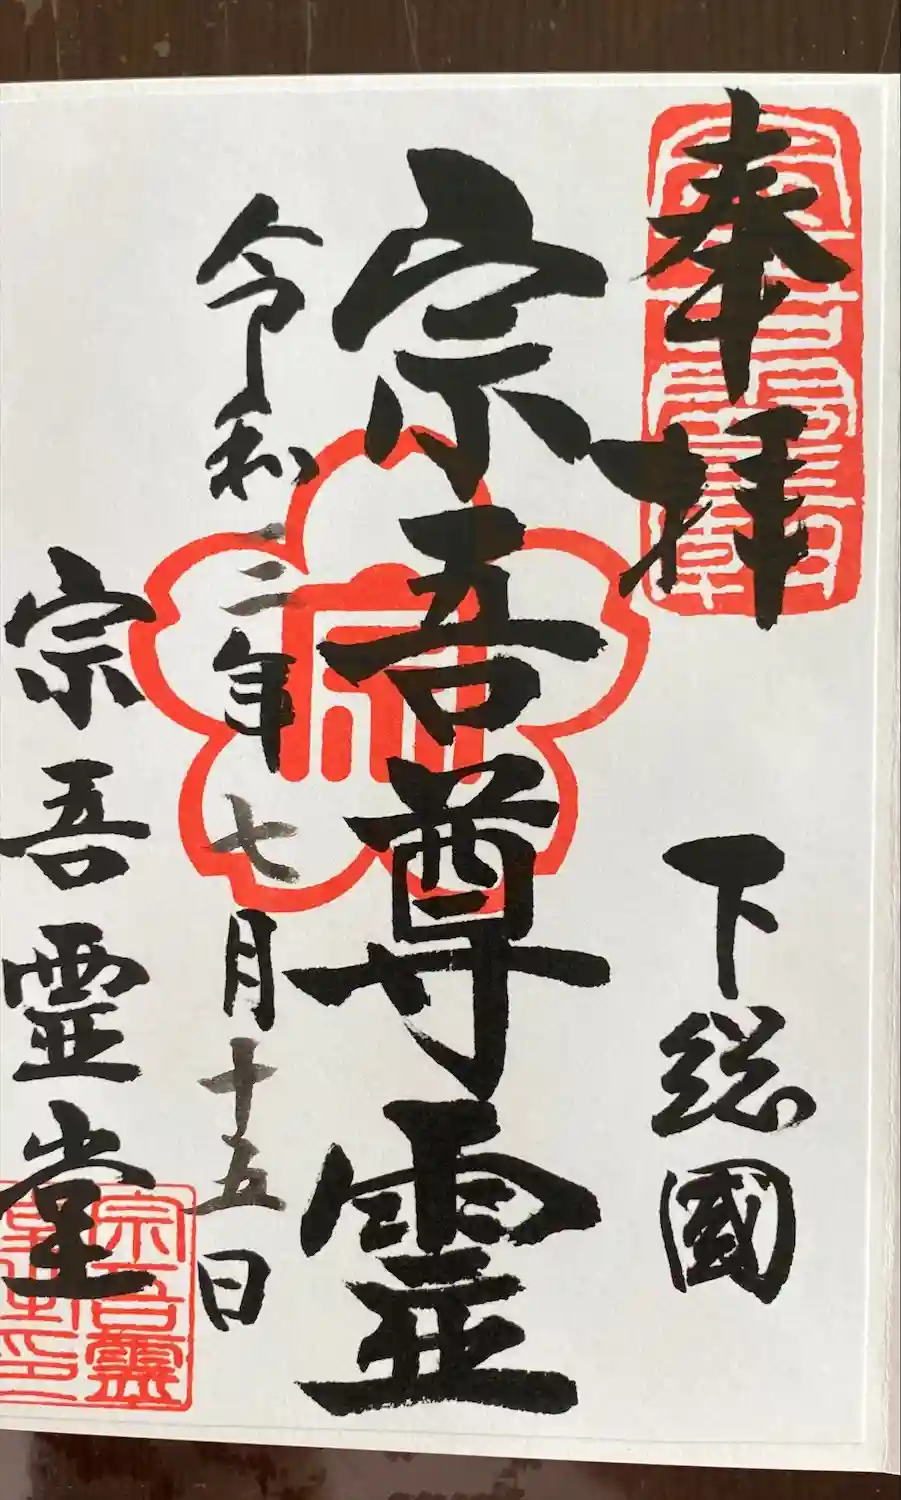 奉拝
下総國
宗吾尊霊
令和二年七月十五日
宗吾霊堂
宗吾霊